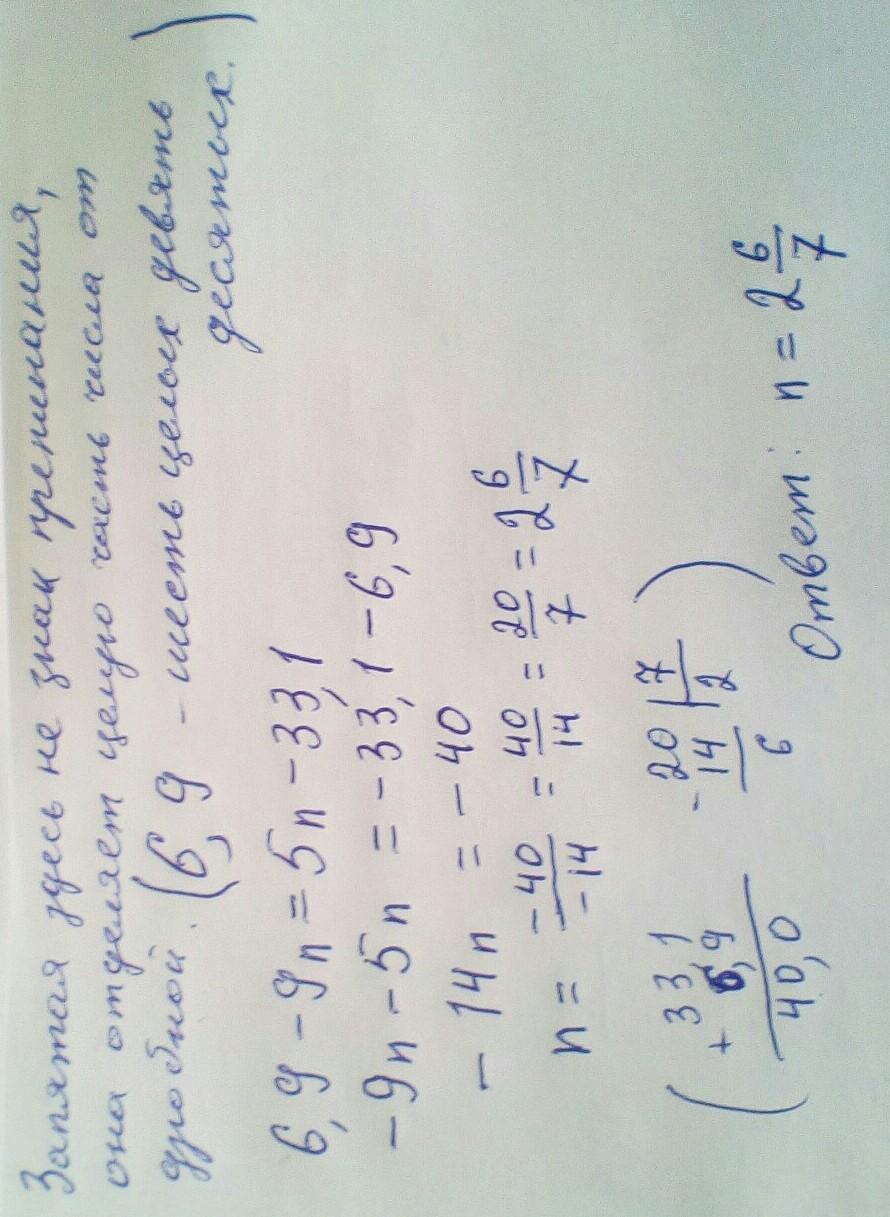 Запятая здесь не знак препинания,
она отделяет целую часть числа от
дробной. (6,9 - шесть целых девять
десятых.)
6,9 - 9n = 5n - 33,1
-9n - 5n = -33,1 - 6,9
-14n = -40
n = -40/-14 = 40/14 = 20/7 = 2 6/7
( + 33,1
6,9
40,0
- 20 | 7
14 | 2
6 )
Ответ: n = 2 6/7